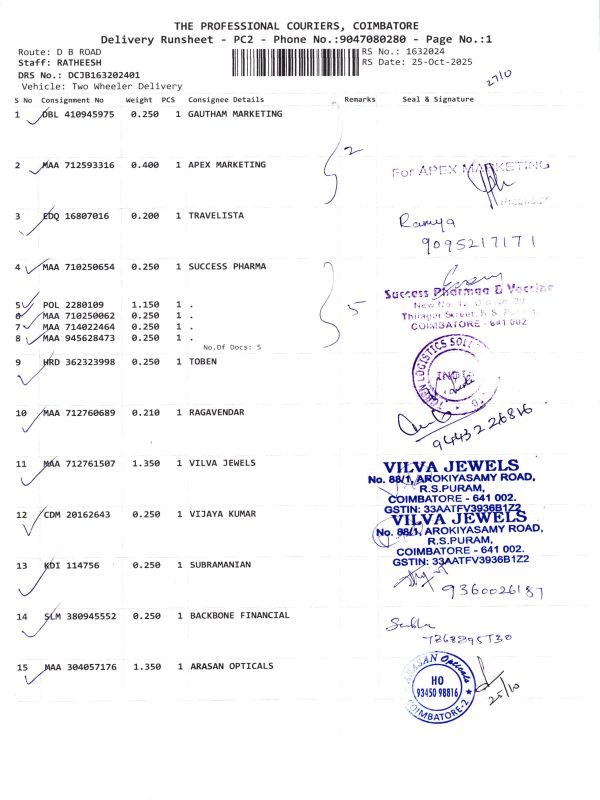 THE PROFESSIONAL COURIERS, COIMBATORE
Delivery Runsheet - PC2 - Phone No.:9047080280 - Page No.:1
Route: D B ROAD RS No.: 1632024
Staff: RATHEESH RS Date: 25-Oct-2025
DRS No.: DCJB163202401
Vehicle: Two Wheeler Delivery
27/10
S No Consignment No Weight PCS Consignee Details Remarks Seal & Signature
1 DBL 410945975 0.250 1 GAUTHAM MARKETING
2
2 MAA 712593316 0.400 1 APEX MARKETING
For APEX MARKETING
3 EDQ 16807016 0.200 1 TRAVELISTA
Ramya
9095217171
4 MAA 710250654 0.250 1 SUCCESS PHARMA
Success Pharmaa & Vaccine
5 POL 2280109 1.150 1 .
5
6 MAA 710250062 0.250 1 .
7 MAA 714022464 0.250 1 .
COIMBATORE - 641 002
8 MAA 945628473 0.250 1 .
No.Of Docs: 5
9 HRD 362323998 0.250 1 TOBEN
TOBEN LOGISTICS
10 MAA 712760689 0.210 1 RAGAVENDAR
9443226816
11 MAA 712761507 1.350 1 VILVA JEWELS
VILVA JEWELS
No. 88/1, AROKIYASAMY ROAD,
R.S.PURAM,
COIMBATORE - 641 002.
GSTIN: 33AATFV3936B1Z2
12 CDM 20162643 0.250 1 VIJAYA KUMAR
VILVA JEWELS
No. 88/1, AROKIYASAMY ROAD,
R.S.PURAM,
COIMBATORE - 641 002.
GSTIN: 33AATFV3936B1Z2
13 KDI 114756 0.250 1 SUBRAMANIAN
9360026187
14 SLM 380945552 0.250 1 BACKBONE FINANCIAL
15 MAA 304057176 1.350 1 ARASAN OPTICALS
ARASAN Opticals
HO
93450 98816
COIMBATORE-2
25/10